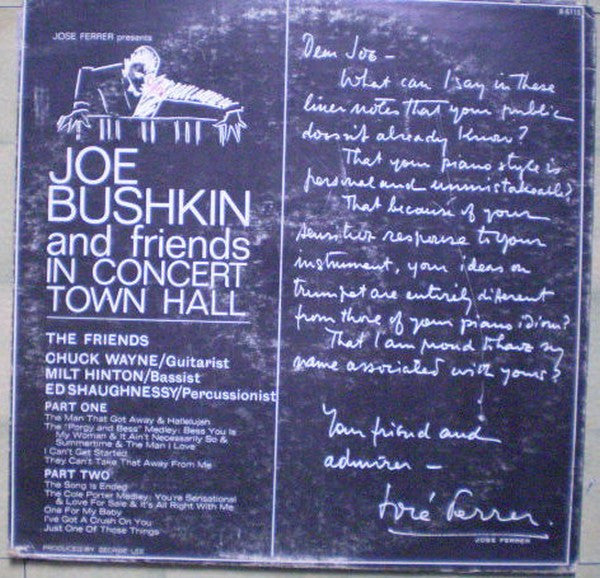 JOSE FERRER presents
JOE
BUSHKIN
and friends
IN CONCERT
TOWN HALL
THE FRIENDS
CHUCK WAYNE/Guitarist
MILT HINTON/Bassist
ED SHAUGHNESSY/Percussionist
PART ONE
The Man That Got Away & Hallelujah
The "Porgy and Bess" Medley: Bess You Is
My Woman & It Ain't Necessarily So &
Summertime & The Man I Love
I Can't Get Started
They Can't Take That Away From Me
PART TWO
The Song Is Ended
The Cole Porter Medley: You're Sensational
& Love For Sale & It's All Right With Me
One For My Baby
I've Got A Crush On You
Just One Of Those Things
PRODUCED BY GEORGE LEE
Dear Joe —
What can I say in these
liner notes that your public
doesn't already know?
That your piano style is
personal and unmistakeable?
That because of your
sensitive response to your
instrument, your ideas on
trumpet are entirely different
from those of your piano idiom?
That I am proud to have my
name associated with yours?
Your friend and
admirer —
José Ferrer.
JOSE FERRER